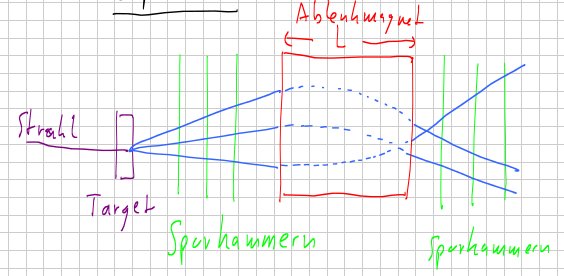 Ablenkmagnet
L
Strahl
Target
Spurkammern
Spurkammern